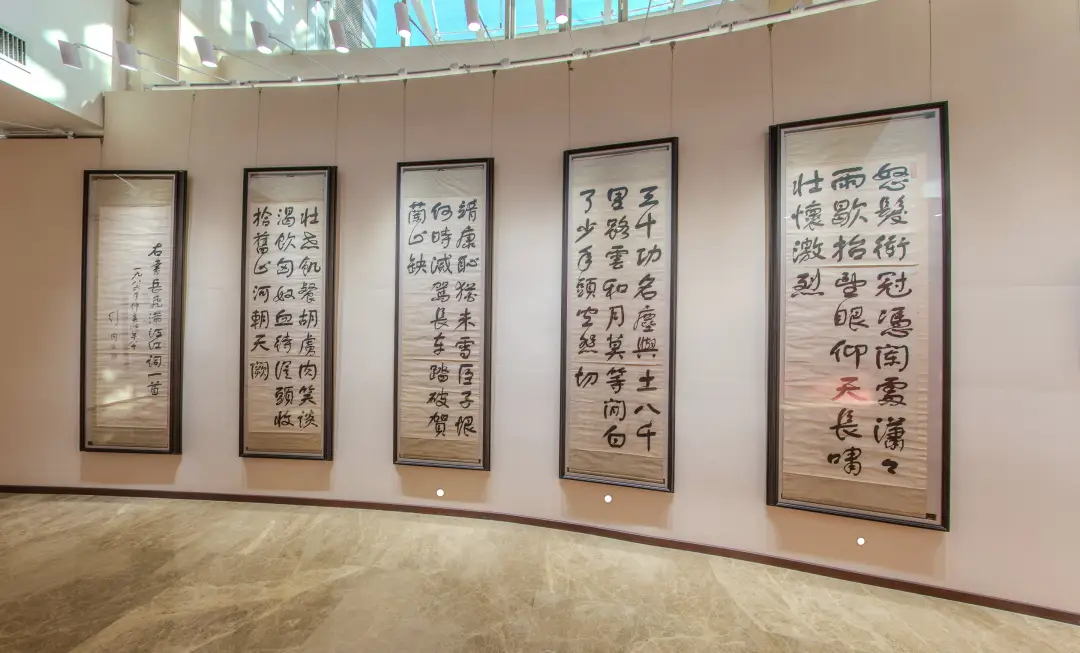 怒髮衝冠憑闌處瀟々
雨歇抬望眼仰天長嘯
壯懷激烈
三十功名塵與土八千
里路雲和月莫等閑白
了少年頭空悲切
靖康恥猶未雪臣子恨
何時滅駕長车踏破賀
蘭山缺
壯志飢餐胡虜肉笑談
渴飲匈奴血待從頭收
拾舊山河朝天闕
右書岳飛滿江红词一首
一九八